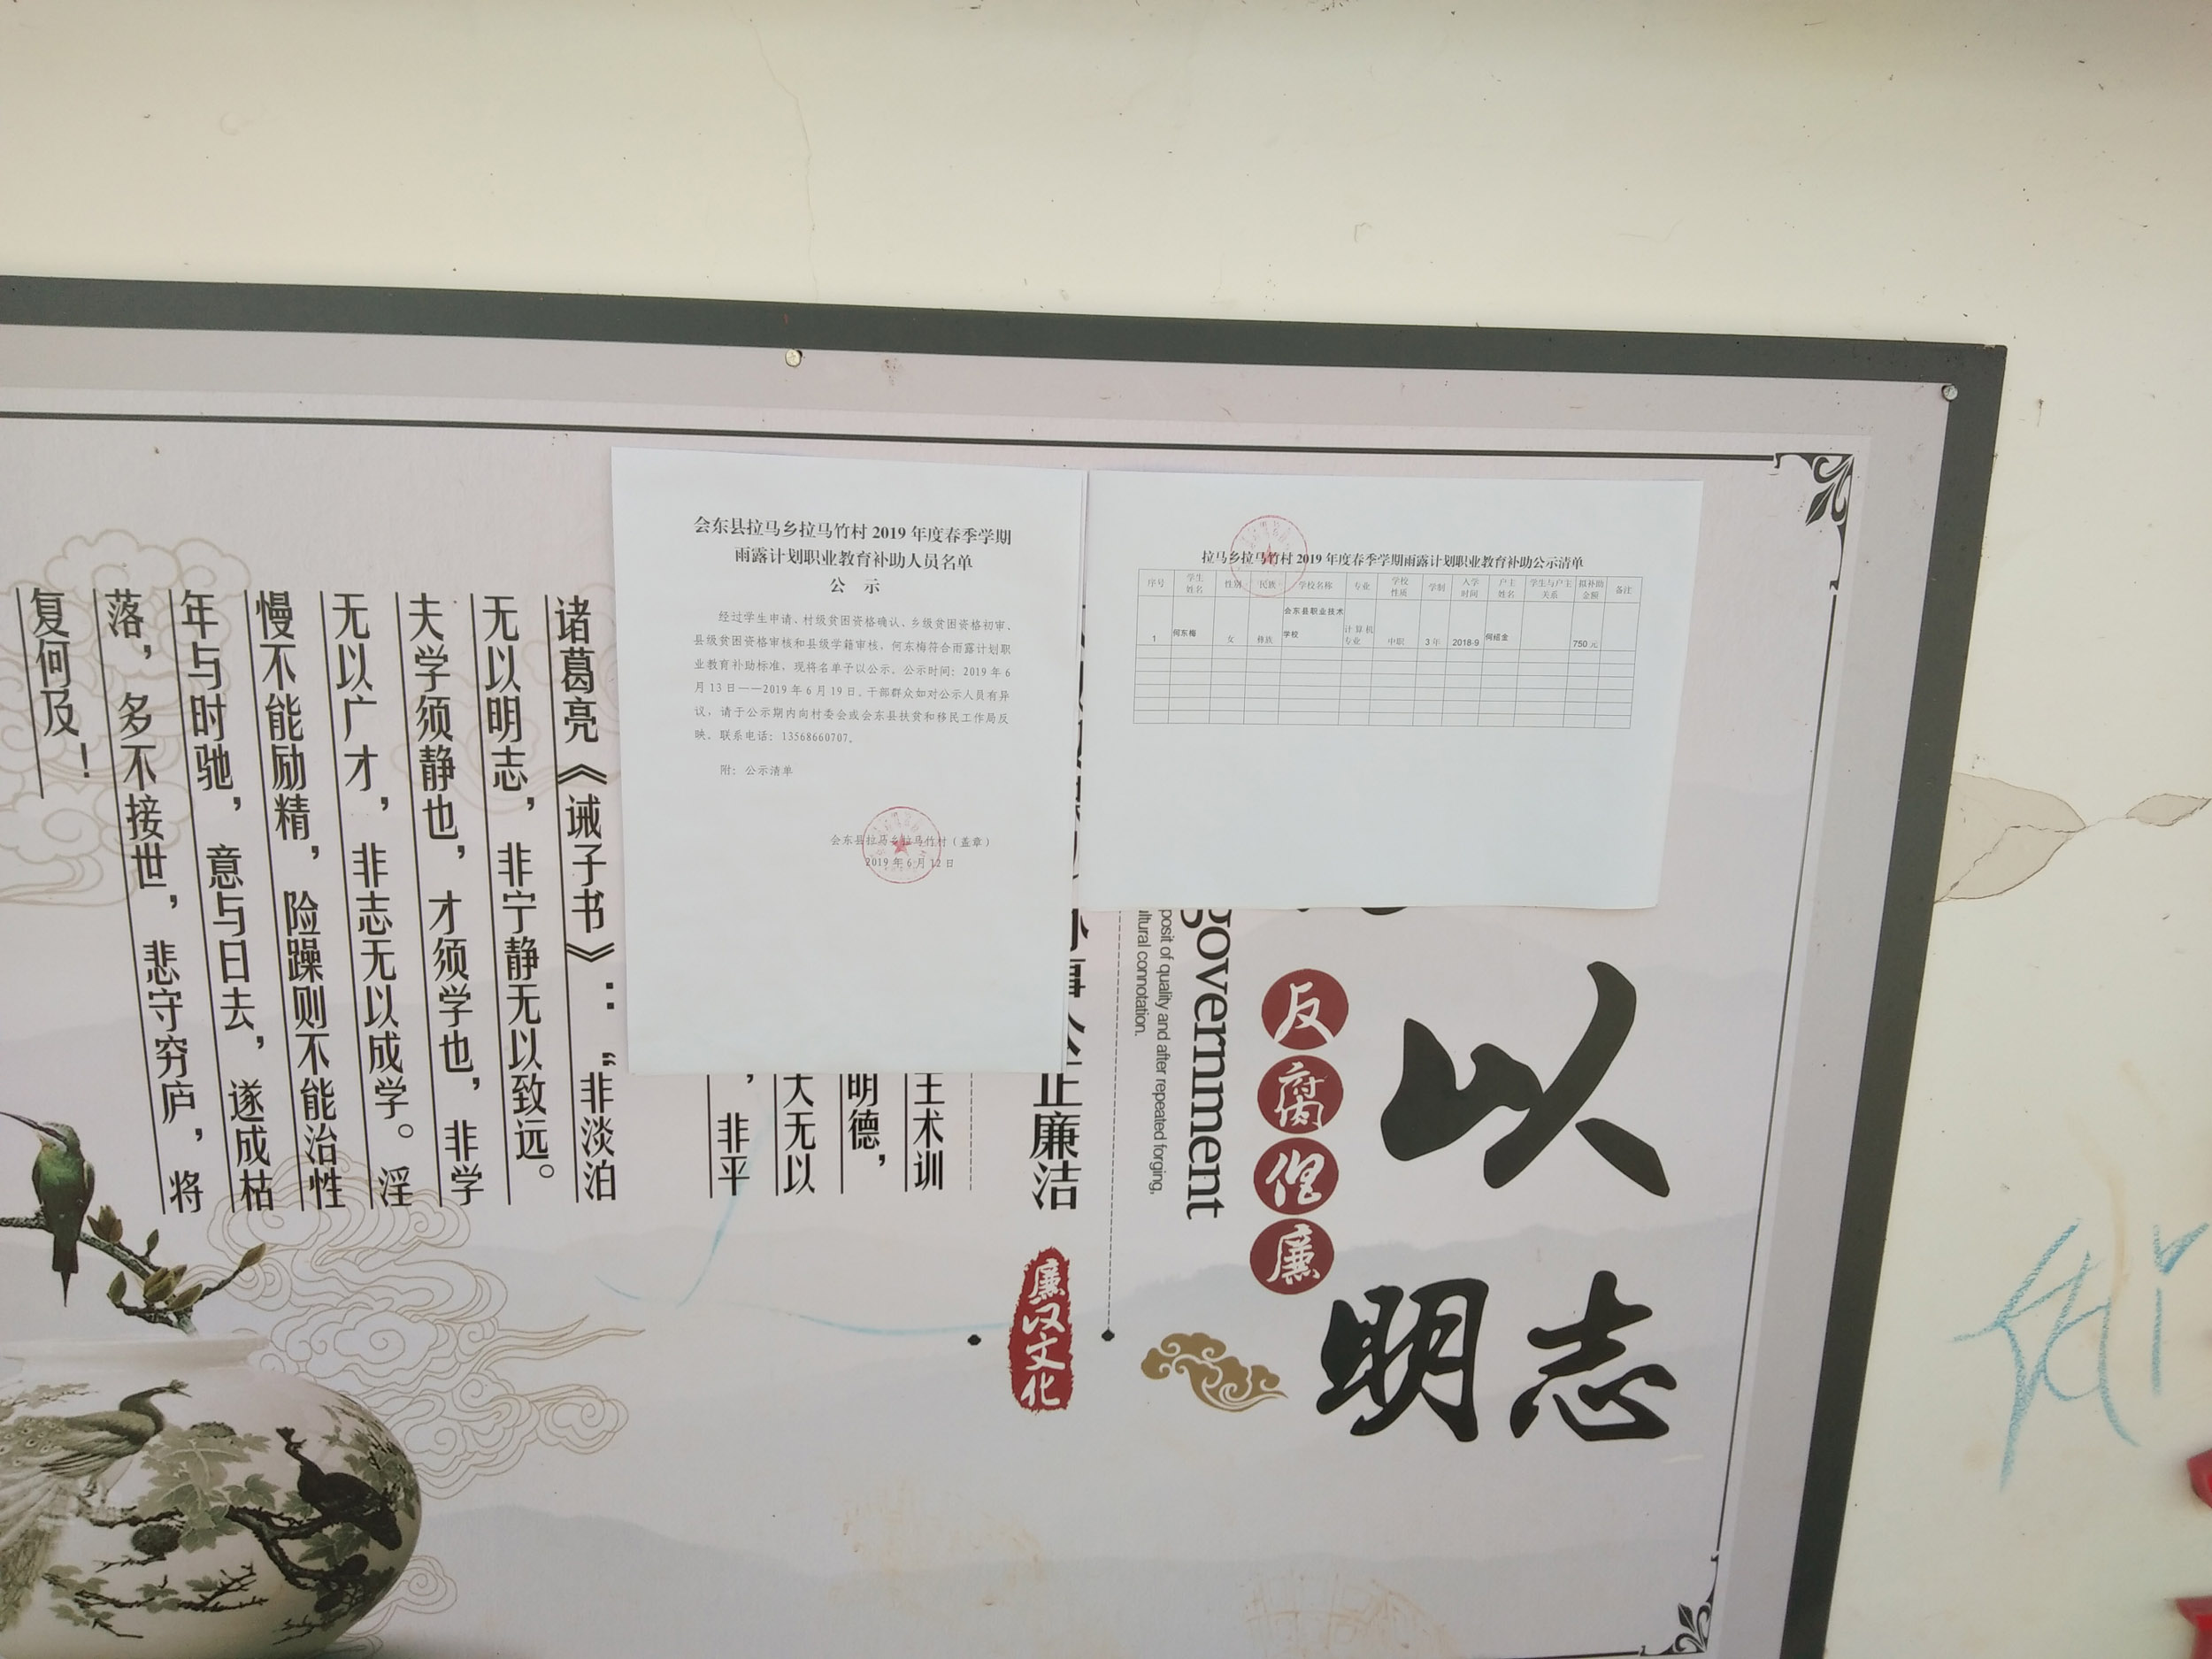 会东县拉马乡拉马竹村 2019 年度春季学期
雨露计划职业教育补助人员名单
公 示
经过学生申请、村级贫困资格确认、乡级贫困资格初审、
县级贫困资格审核和县级学籍审核，何东梅符合雨露计划职
业教育补助标准，现将名单予以公示，公示时间：2019 年 6
月 13 日——2019 年 6 月 19 日。干部群众如对公示人员有异
议，请于公示期内向村委会或会东县扶贫和移民工作局反
映。联系电话：13568660707。
附：公示清单
会东县拉马乡拉马竹村（盖章）
2019 年 6 月 12 日
拉马乡拉马竹村 2019 年度春季学期雨露计划职业教育补助公示清单
序号 学生姓名 性别 民族 学校名称 专业 学校性质 学制 入学时间 户主姓名 学生与户主关系 拟补助金额 备注
1 何东梅 女 彝族 会东县职业技术学校 计算机专业 中职 3 年 2018-9 何绍金 750 元
以
明志
反腐倡廉
government
posit of quality and after repeated forging,
ltural connotation.
正廉洁
廉汉文化
王术训
明德，
大无以
，非平
诸葛亮《诫子书》：“非淡泊
无以明志，非宁静无以致远。
夫学须静也，才须学也，非学
无以广才，非志无以成学。淫
慢不能励精，险躁则不能治性
年与时驰，意与日去，遂成枯
落，多不接世，悲守穷庐，将
复何及！